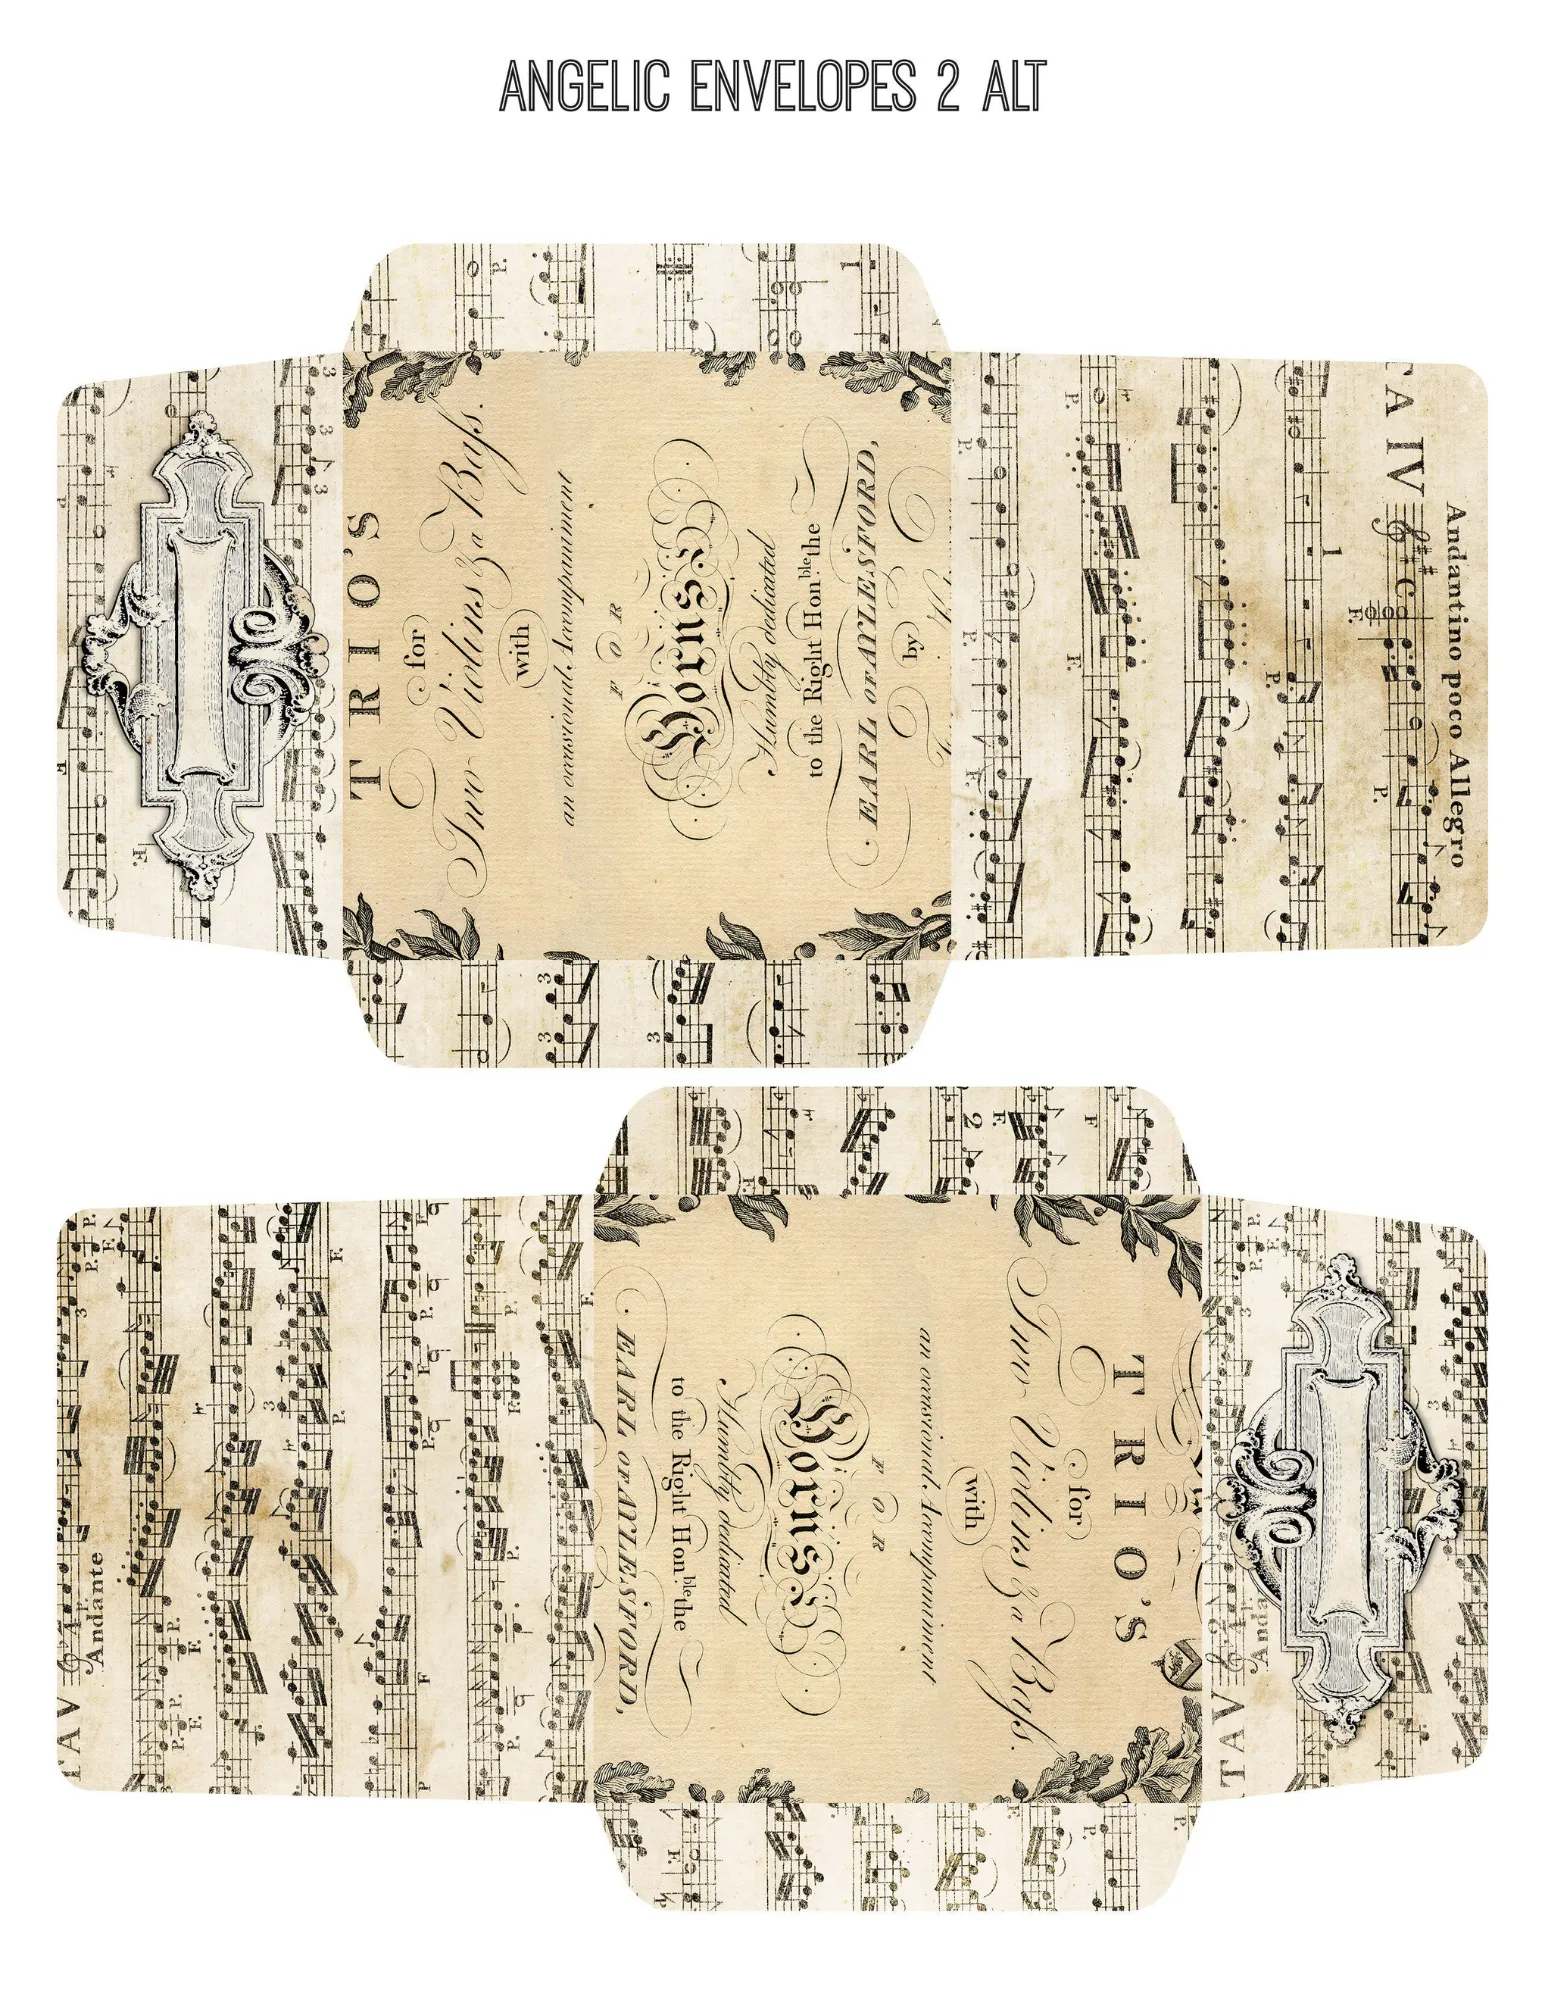 ANGELIC ENVELOPES 2 ALT
TRIO'S
for
Two Violins & a Bass.
with
an occasional Accompaniment
FOR
Horns
Humbly dedicated
to the Right Hon.ble the
EARL OF AYLESFORD,
by
TA IV
Andantino poco Allegro
P.
P.
F.
F.
P.
P.
P.
F.
F.
P.
F.
3
3
3
3
3
3
1
1
TRIO'S
for
Two Violins & a Bass.
with
an occasional Accompaniment
FOR
Horns
Humbly dedicated
to the Right Hon.ble the
EARL OF AYLESFORD,
TA V
Andante
TA V
Anda
2
F.
F
P.
F.
P.
F.
3
3
3
3